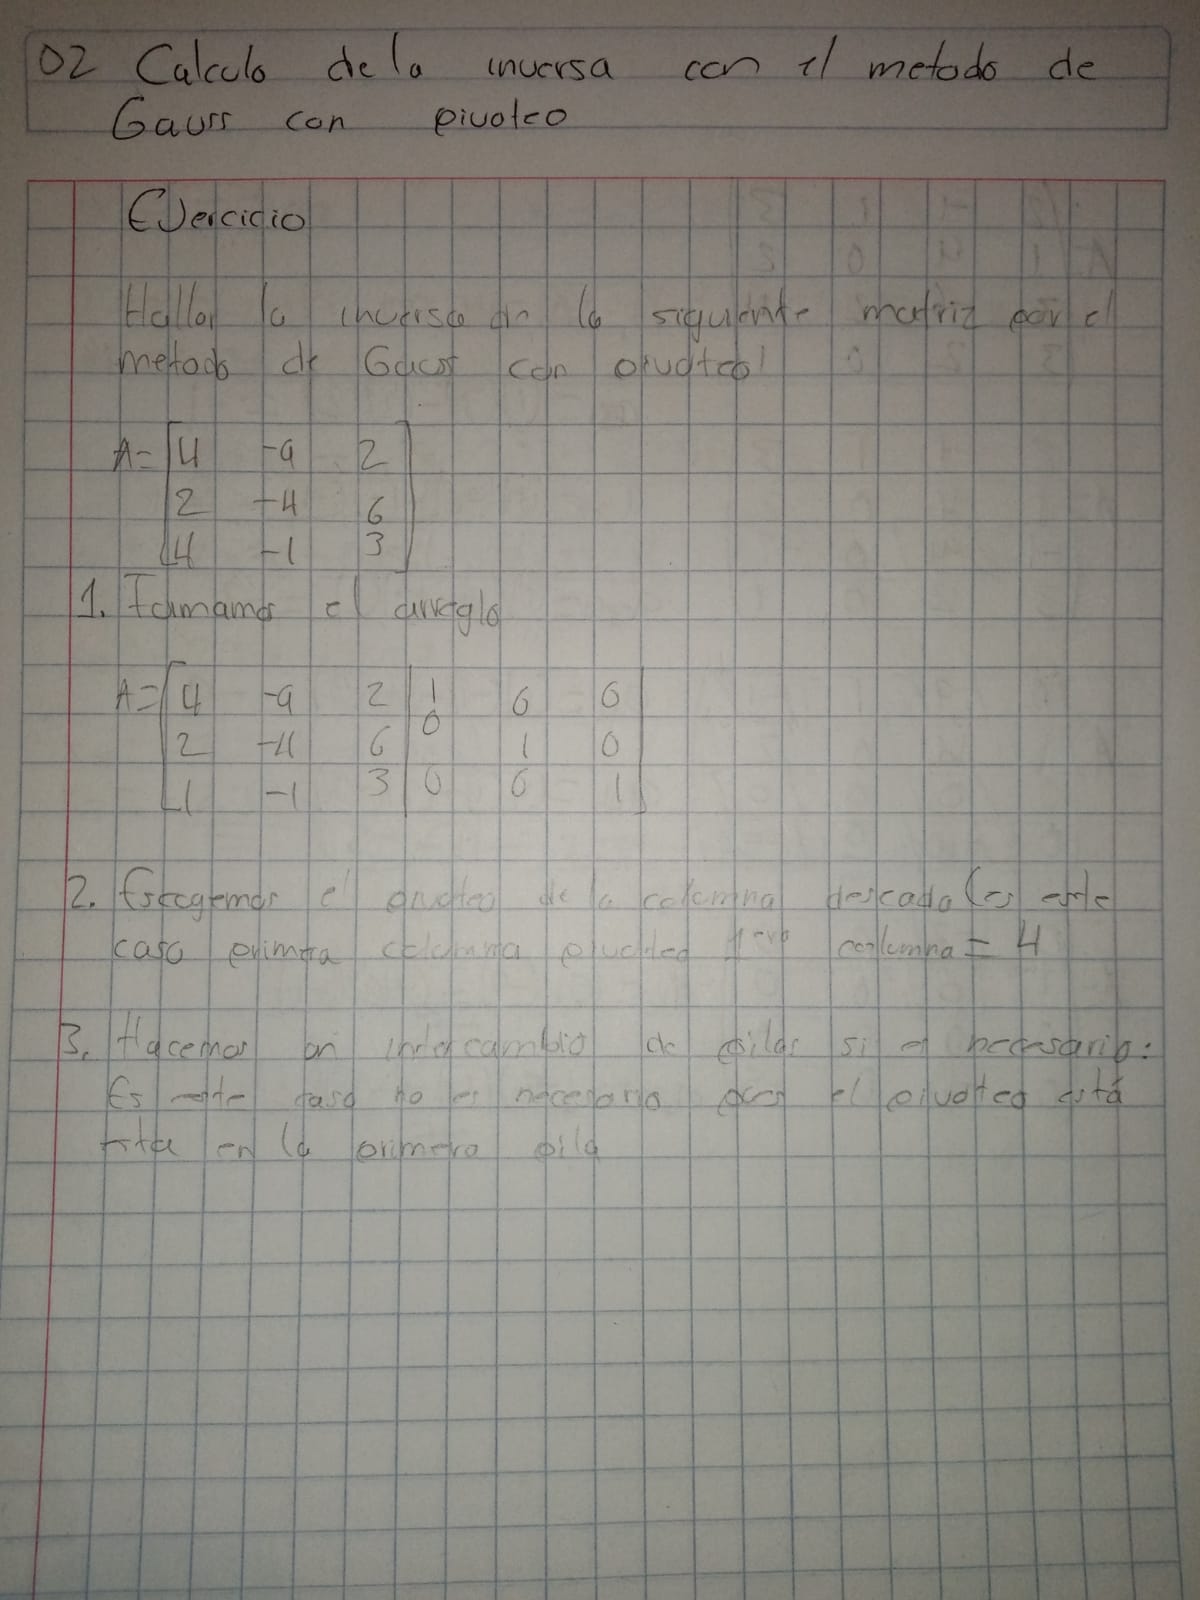 02 Calculo de la inversa con el metodo de
Gauss con pivoteo
Ejercicio
Hallar la inversa de la siguiente matriz por el
metodo de Gauss con pivoteo
A= 4 -9 2
2 -4 6
4 -1 3
1. Formamos el arreglo
A= 4 -9 2 | 1 0 0
2 -4 6 | 0 1 0
1 -1 3 | 0 0 1
2. Escogemos el pivoteo de la columna deseada (es este
caso primera columna pivoteo 1era columna = 4
3. Hacemos un intercambio de filas si es necesario:
Es este caso no es necesario pues el pivoteo está
en la primera fila